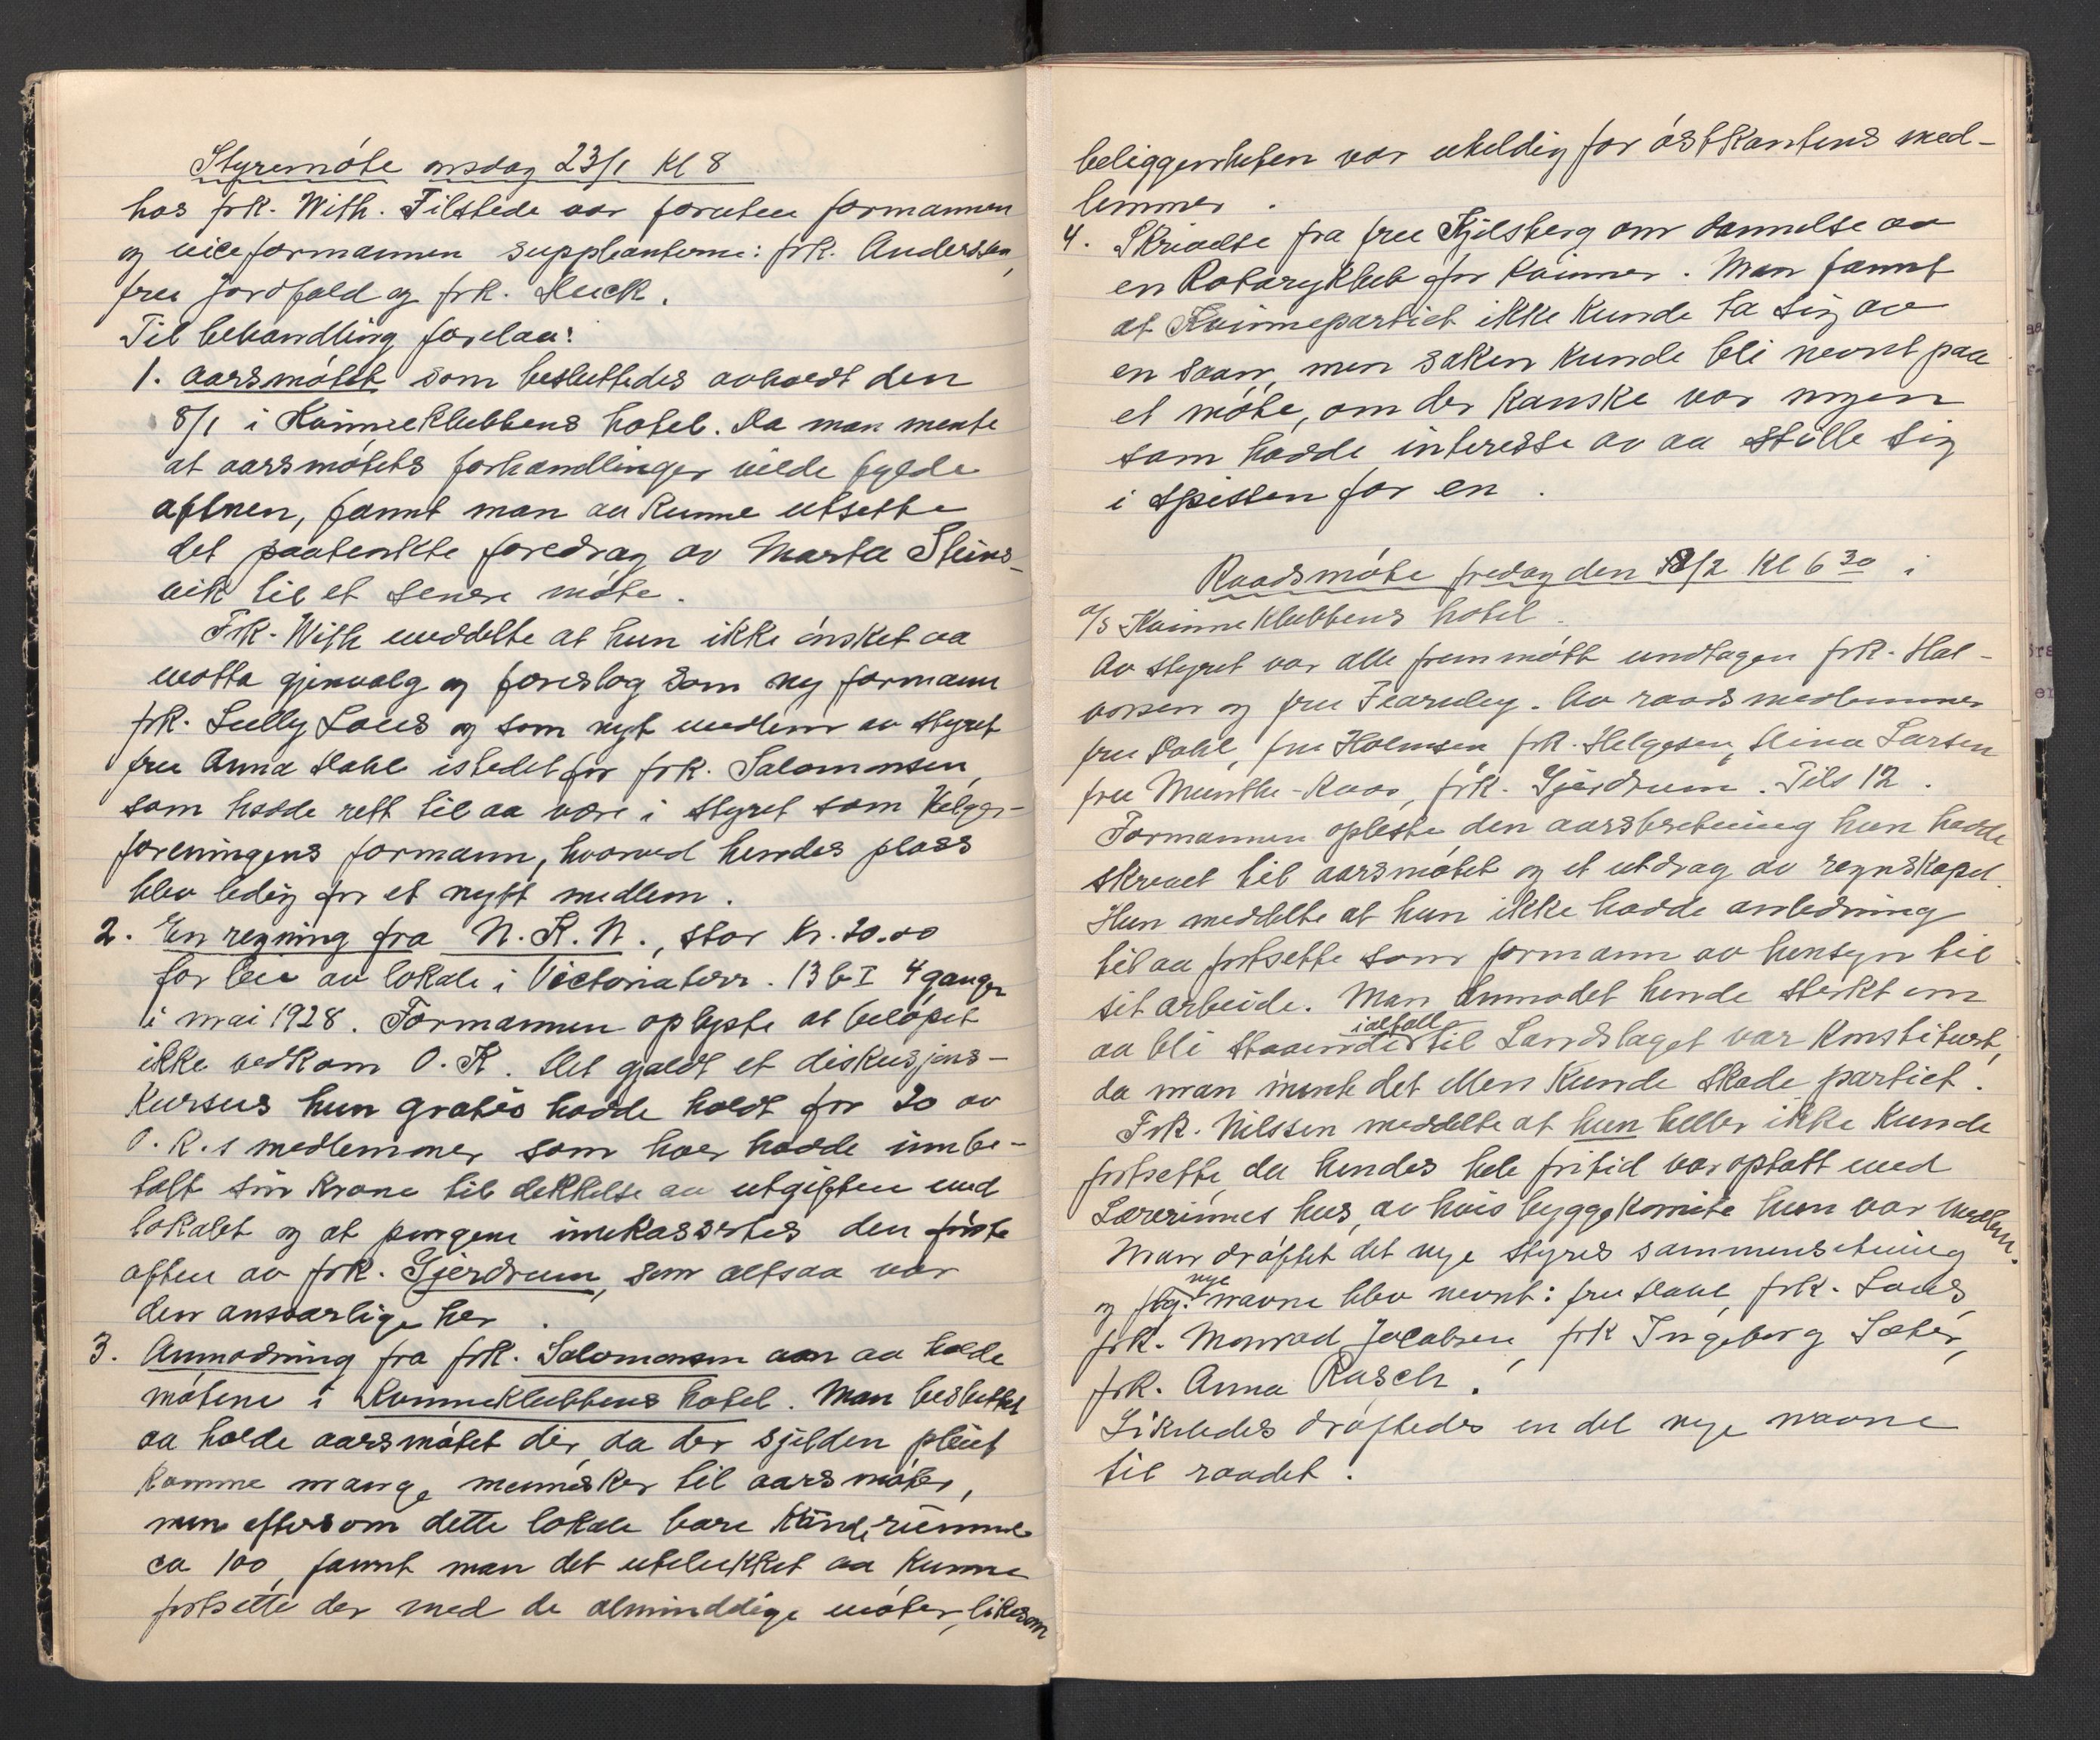 Styremöte onsdag 23/1 Kl 8
hos frk. With. Tilstede var foruten formannen
og viceformannen suppleanterne: frk. Anderssen,
fru Jordfald og frk. Huck.
Til behandling forelaa:
1. Aarsmötet som besluttedes avholdt den
8/1 i Kvinneklubbens hotel. Da man mente
at aarsmötets forhandlinger vilde fylde
aftnen, fannt man aa kunne utsette
det paatenkte foredrag av Marta Steins-
vik til et senere möte.
Frk. With meddelte at hun ikke önsket aa
motta gjenvalg og foreslog som ny formann
frk. Lully Lous og som nyt medlem av styret
fru Anna Dahl istedet for frk. Salomonsen,
som hadde rett til aa være i styret som Velger-
foreningens formann, hvorved hendes plass
blev ledig for et nytt medlem.
2. En regning fra N. K. N., stor Kr. 20.00
for leie av lokale i Victoriaterr. 13 b I 4 ganger
i mai 1928. Formannen oplyste at belöpet
ikke vedkom O. K. Det gjaldt et diskusjons-
kursus hun gratis hadde holdt for 20 av
O. K.s medlemmer som hver hadde innbe-
talt sin krone til dekkelse av utgiften med
lokalet og at pengene innkassertes den förste
aften av frk. Gjerdrum, som altsaa var
den ansvarlige her.
3. Anmodning fra frk. Salomonsen om aa holde
mötene i Kvinneklubbens hotel. Man besluttet
aa holde aarsmötet der, da der sjelden pleiet
komme mange mennesker til aarsmöter,
men eftersom dette lokale bare kunde rumme
ca 100, fannt man det utelukket aa kunne
fortsette der med de almindelige möter, likesom
beliggenheten var uheldig for östkantens med-
lemmer.
4. Skrivelse fra fru Kjelsberg om dannelse av
en Rotaryklub for kvinner. Man fannt
at Kvinnepartiet ikke kunde ta sig av
en saan, men saken kunde bli nevnt paa
et möte, om der kanske var nogen
som hadde interesse av aa stille sig
i spissen for en.
Raadsmöte fredag den 8/2 Kl 6 30 i
A/S Kvinneklubbens hotel.
Av styret var alle fremmött undtagen frk. Hal-
vorsen og fru Fearnley. Av raadsmedlemmer
fru Dahl, fru Holmsen, frk. Helgesen, Stina Larsen
fru Munthe-Kaas, frk. Gjerdrum. Tils 12.
Formannen opleste den aarsberetning hun hadde
skrevet til aarsmötet og et utdrag av regnskapet.
Hun meddelte at hun ikke hadde anledning
til aa fortsette som formann av hensyn til
sit arbeide. Man anmodet hende sterkt om
aa bli staaende ialfall til Landslaget var konstituert,
da man mente det ellers kunde skade partiet.
Frk. Nilssen meddelte at hun heller ikke kunde
fortsette, da hendes hele fritid var optatt med
Lærerinnes hus, av hvis byggekomite hun var medlem.
Man dröftet det nye styres sammensetning
og flg. nye navne blev nevnt: fru Dahl, frk. Lous,
frk. Monrad Jacobsen, frk Ingeborg Sæter,
frk. Anna Rasch.
Likeledes dröftedes en del nye navne
til raadet.